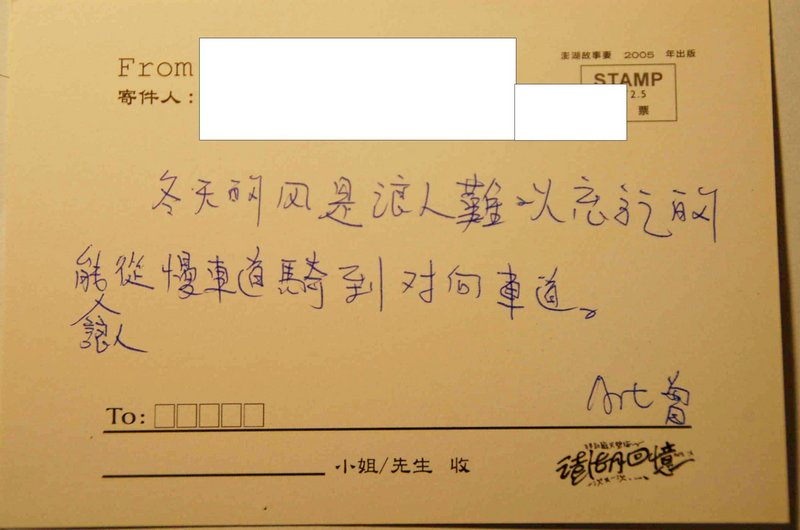 From
寄件人：
澎湖故事妻 2005 年出版
STAMP
2.5
票
冬天的风是浪人難以忘记的
能從慢車道騎到对向車道。
人
To:
小姐/先生 收
澎湖回憶